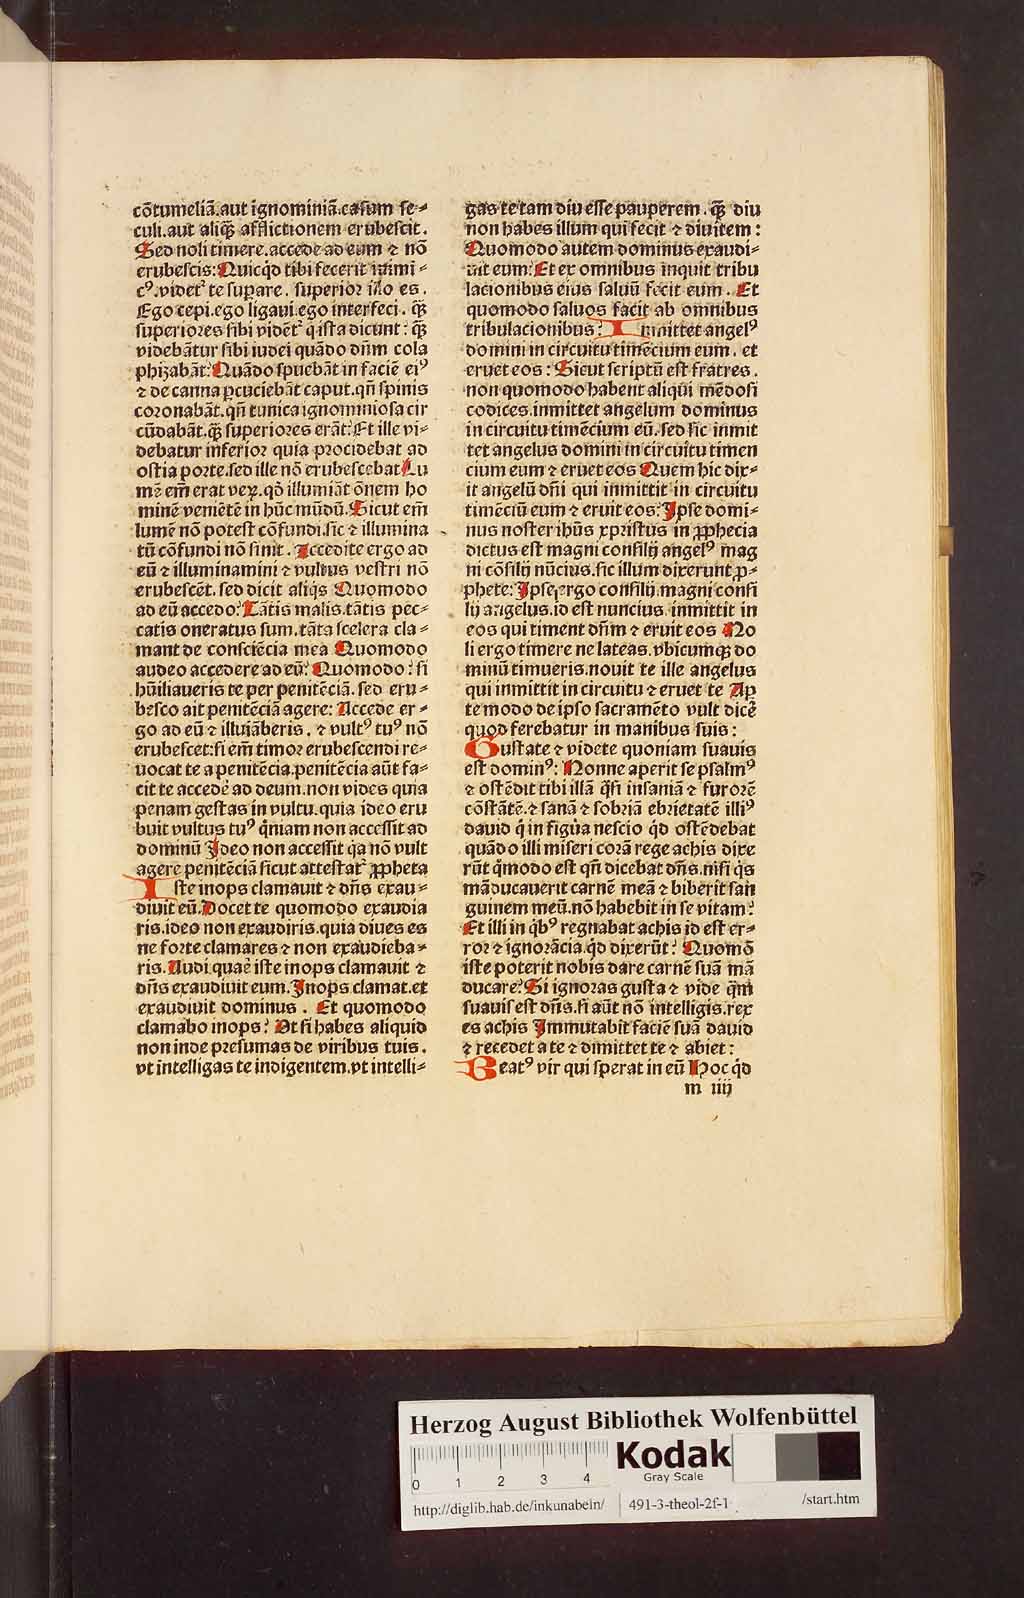 cōtumeliā.aut ignominiā.casum se⸗
culi.aut aliqꝫ afflictionem erubescit.
Sed noli timere.accede ad eum ⁊ nō
erubescis: Quicqd tibi fecerit inimi⸗
cꝰ.videtᷣ te supare. superior illo es.
Ego cepi.ego ligavi.ego interfeci. qꝫ
superiores sibi vident̄ q ista dicunt: qꝫ
videbātur sibi iudei quādo dn̄m cola
phizabāt: Quādo spuebāt in faciē eiꝰ
⁊ de canna pcuciebāt caput.qn̄ spinis
coronabāt.qn̄ tunica ignominiosa cir
cūdabāt.qꝫ superiores erāt: Et ille vi⸗
debatur inferior quia procidebat ad
ostia porte.sed ille nō erubescebat Lu
mē em̄ erat veꝝ.qd illumiāt ōnem ho
minē veniētē in hūc mūdū. Sicut em̄
lumē nō potest cōfundi.sic ⁊ illumina
tū cōfundi nō sinit. Accedite ergo ad
eū ⁊ illuminamini ⁊ vultus vestri nō
erubescēt. sed dicit aliqs Quomodo
ad eū accedo: Tātis malis.tātis pec⸗
catis oneratus sum.tāta scelera cla⸗
mant de consciēcia mea Quomodo
audeo accedere ad eū: Quomodo: si
hūiliaveris te per penitēciā. sed eru⸗
besco ait penitēciā agere: Accede er⸗
go ad eū ⁊ illuiāberis. ⁊ vultꝰ tuꝰ nō
erubescet:si em̄ timor erubescendi re⸗
vocat te a penitēcia.penitēcia aūt fa⸗
cit te accedē ad deum.non vides quia
penam gestas in vultu.quia ideo eru
buit vultus tuꝰ qniam non accessit ad
dominū Ideo non accessit qa nō vult
agere penitēciā sicut attestat̄ ꝓpheta
Iste inops clamavit ⁊ dn̄s exau⸗
divit eū. Docet te quomodo exaudia
ris.ideo non exaudiris.quia dives es
ne forte clamares ⁊ non exaudieba⸗
ris. Audi quare iste inops clamavit ⁊
dn̄s exaudivit eum. Inops clamat.et
exaudivit dominus. Et quomodo
clamabo inops: Ut si habes aliquid
non inde presumas de viribus tuis.
vt intelligas te indigentem.vt intelli⸗
gas te tam diu esse pauperem. qꝫ diu
non habes illum qui fecit ⁊ divitem:
Quomodo autem dominus exaudi⸗
vit eum: Et ex omnibus inquit tribu
lacionibus eius salvū fecit eum. Et
quomodo salvos facit ab omnibus
tribulacionibus: Inmittet angelꝰ
domini in circuitu timēcium eum. et
eruet eos: Sicut scriptū est fratres.
non quomodo habent aliqui mēdosi
codices.inmittet angelum dominus
in circuitu timēcium eū.sed sic inmit
tet angelus domini in circuitu timen
cium eum ⁊ eruet eos Quem hic dix⸗
it angelū dn̄i qui inmittit in circuitu
timēciū eum ⁊ eruit eos: Ipse domi⸗
nus noster ihūs xpristus in ꝓphecia
dictus est magni consilij angelꝰ mag
ni cōsilij nūcius.sic illum dixerunt ꝓ⸗
phete: Ipse ergo consilij magni consi
lij angelus.id est nuncius. inmittit in
eos qui timent dn̄m ⁊ eruit eos No
li ergo timere ne lateas.vbicumqꝫ do
minū timueris.novit te ille angelus
qui inmittit in circuitu ⁊ eruet te Ap
te modo de ipso sacramēto vult dicē
quod ferebatur in manibus suis:
Gustate ⁊ videte quoniam suavis
est dominꝰ: Nonne aperit se psalmꝰ
⁊ ostēdit tibi illā qsi insaniā ⁊ furorē
cōstātē.⁊ sanā ⁊ sobriā ebrietatē illiꝰ
david q in figura nescio qd ostēdebat
quādo illi miseri corā rege achis dixe
rūt qmodo est qn̄ dicebat dn̄s.nisi qs
māducaverit carnē meā ⁊ biberit san
guinem meū.nō habebit in se vitam:
Et illi in qbꝰ regnabat achis id est er⸗
ror ⁊ ignorācia.qd dixerūt: Quomō
iste poterit nobis dare carnē suā mā
ducare: Si ignoras gusta ⁊ vide qm̄
suavis est dn̄s.si aūt nō intelligis.rex
es achis Immutabit faciē suā david
⁊ recedet a te ⁊ dimittet te ⁊ abiet:
Beatꝰ vir qui sperat in eū Hoc qd
m iiij
Herzog August Bibliothek Wolfenbüttel
0 1 2 3 4
Kodak
Gray Scale
http://diglib.hab.de/inkunabeln/ 491-3-theol-2f-1 /start.htm